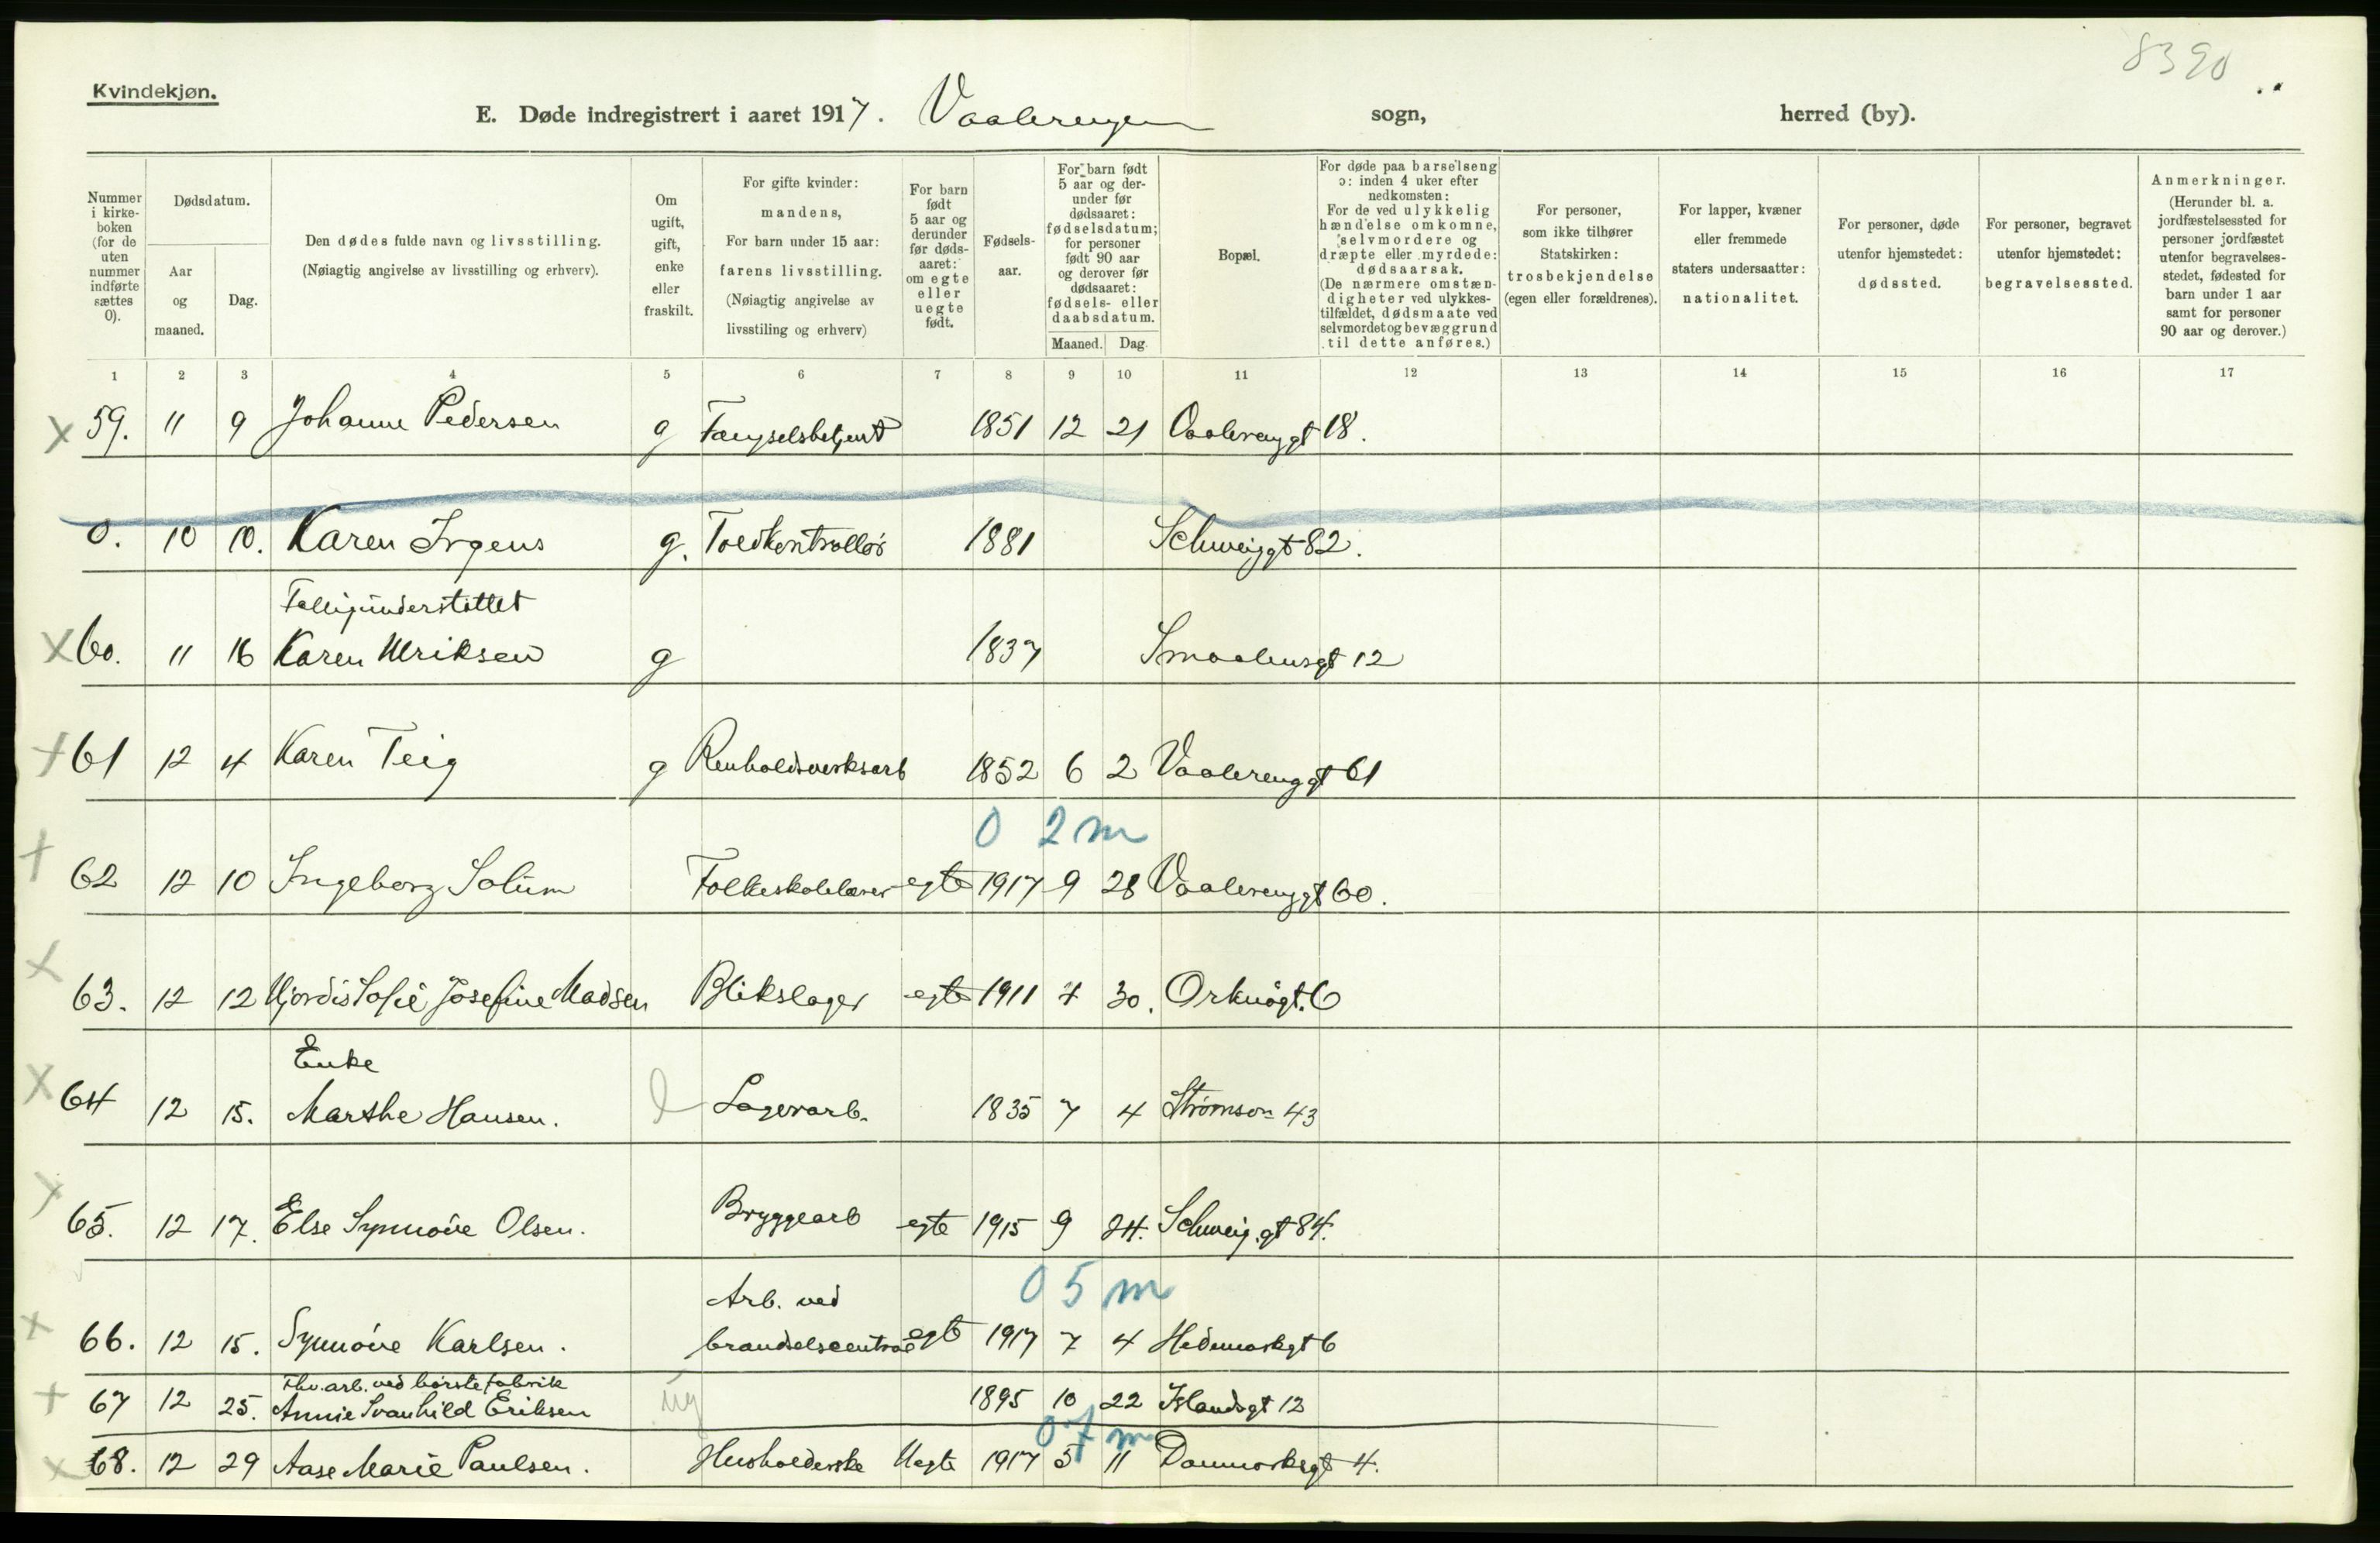 8390
Kvindekjøn.
E. Døde indregistrert i aaret 1917. Vaalerengen sogn, herred (by).
Nummer i kirke- boken (for de uten nummer indførte sættes 0).
Dødsdatum.
Aar og maaned.
Dag.
Den dødes fulde navn og livsstilling.
(Nøiagtig angivelse av livsstilling og erhverv).
Om ugift, gift, enke eller fraskilt.
For gifte kvinder: mandens,
For barn under 15 aar: farens livsstilling.
(Nøiagtig angivelse av livsstiling og erhverv)
For barn født 5 aar og derunder før døds- aaret: om egte eller uegte født.
Fødsels- aar.
For barn født 5 aar og der- under før dødsaaret: fødselsdatum; for personer født 90 aar og derover før dødsaaret: fødsels- eller daabsdatum.
Maaned. Dag.
Bopæl.
For døde paa barselseng ɔ: inden 4 uker efter nedkomsten:
For de ved ulykkelig hændelse omkomne, selvmordere og dræpte eller myrdede: dødsaarsak.
(De nærmere omstæn- digheter ved ulykkes- tilfældet, dødsmaate ved selvmordet og bevæggrund til dette anføres.)
For personer, som ikke tilhører Statskirken: trosbekjendelse (egen eller forældrenes).
For lapper, kvæner eller fremmede staters undersaatter: nationalitet.
For personer, døde utenfor hjemstedet: dødssted.
For personer, begravet utenfor hjemstedet: begravelsessted.
Anmerkninger.
(Herunder bl. a. jordfæstelsessted for personer jordfæstet utenfor begravelses- stedet, fødested for barn under 1 aar samt for personer 90 aar og derover.)
1 2 3 4 5 6 7 8 9 10 11 12 13 14 15 16 17
x 59. 11 9 Johanne Pedersen g Fængselsbetjent 1851 12 21 Vaalerenggt 18.
0. 10 10. Karen Irgens g. Toldkontrollør 1881 Schweiggt 82.
Fattigunderstøttet
x 60. 11 16 Karen Ulriksen g 1837 Smaalensgt 12
+ 61 12 4 Karen Teig g Renholdsverksarb 1852 6 2 Vaalerenggt 61
0 2 m
+ 62 12 10 Ingeborg Solum Folkeskolelærer egte 1917 9 28 Vaalerenggt 60.
x 63. 12 12 Hjordis Sofie Josefine Madsen Blikslager egte 1911 30. Orknøgt. 6
Enke
x 64 12 15. Marthe Hansen. Lagerarb. 1835 7 4 43
x 65. 12 17. Else Synnöve Olsen. Bryggearb egte 1915 9 24. Schweig.gt 84.
0 5 m
Arb. ved
x 66. 12 15. Synnöve Karlsen. egte 1917 7 4 Hedemarkgt 6
Fhv. arb. ved børstefabrik
+ 67 12 25. Annie Svanhild Eriksen ug 1895 10 22 Islandsgt 12
0 7 m
x 68. 12 29 Aase Marie Paulsen. Husholderske Uegte 1917 5 11 Danmarksgt 4.